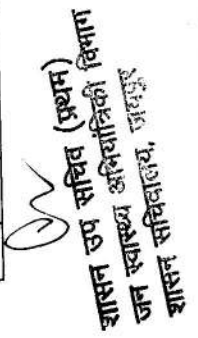 शासन उप सचिव (प्रथम)
जन स्वास्थ्य अभियांत्रिकी विभाग
शासन सचिवालय, जयपुर